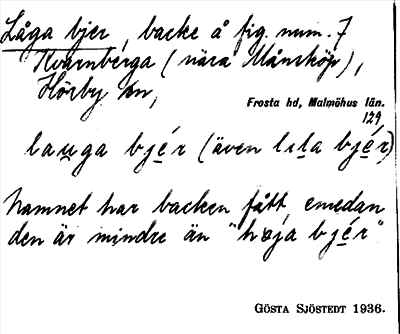 Låga bjer, backe å fig. num. 7
Kvarnberga (nära Månsköp),
Hörby sn,
Frosta hd, Malmöhus län.
129,
lauga bjér (även lıla bjér)
Namnet har backen fått, emedan
den är mindre än "høja bjér"
GÖSTA SJÖSTEDT 1936.